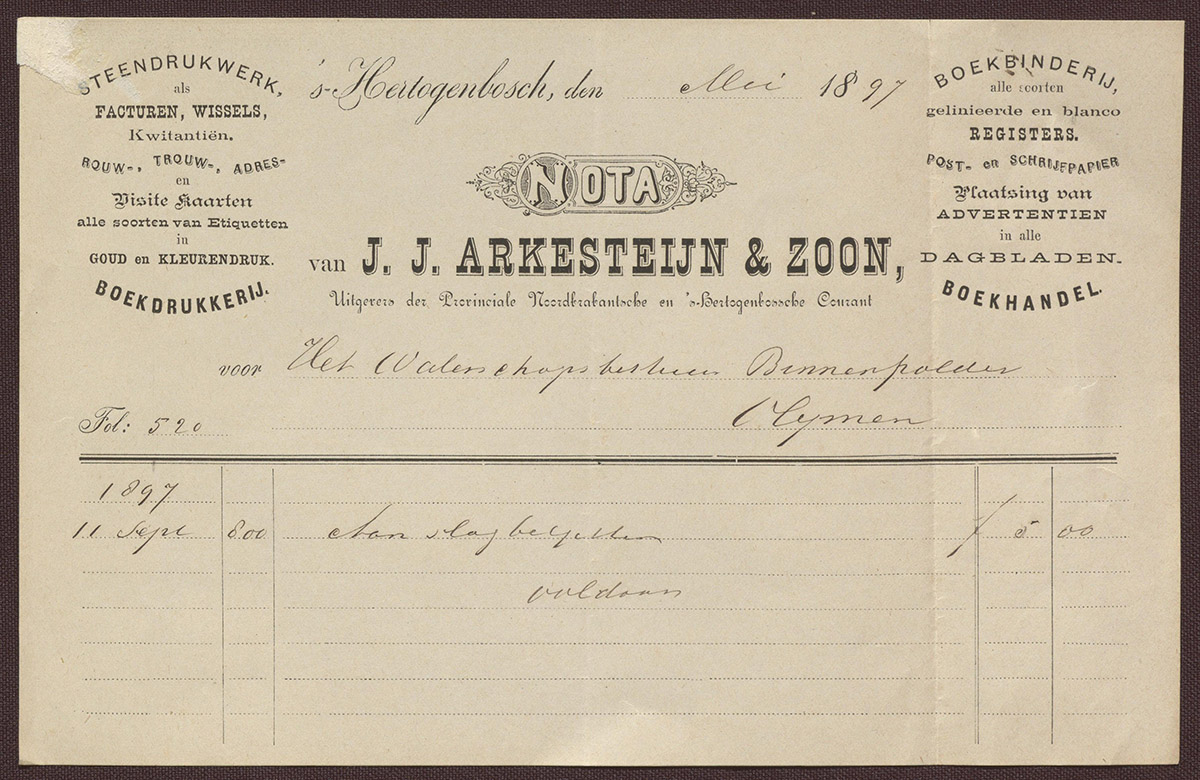 STEENDRUKWERK,
als
FACTUREN, WISSELS,
Kwitantiën.
ROUW-, TROUW-, ADRES-
en
Visite Kaarten
alle soorten van Etiquetten
in
GOUD en KLEURENDRUK.
BOEKDRUKKERIJ.
's-Hertogenbosch, den Mei 1897
NOTA
van J. J. ARKESTEIJN & ZOON,
Uitgevers der Provinciale Noordbrabantsche en 's-Hertogenbossche Courant
BOEKBINDERIJ,
alle soorten
gelinieerde en blanco
REGISTERS.
POST- en SCHRIJFPAPIER
Plaatsing van
ADVERTENTIEN
in alle
DAGBLADEN.
BOEKHANDEL.
voor Het Waterschapsbestuur Binnenpolder
Fol: 520
1897
11 Sept 800 Aanslagbiljetten f 5 00
voldaan